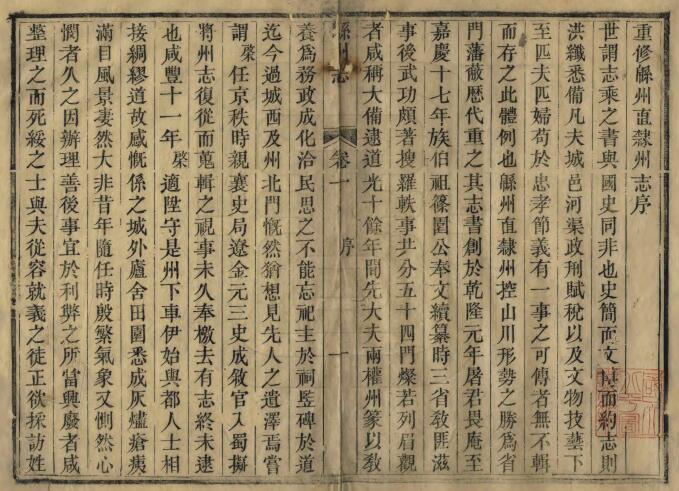 重修緜州直隸州志序
世謂志乘之書與國史同非也史簡而文志則
洪纖悉備凡夫城邑河渠政刑賦稅以及文物技藝下
至匹夫匹婦苟於忠孝節義有一事之可傳者無不輯
而存之此體例也緜州直隸州控山川形勢之勝為省
門藩蔽歷代重之其志書創於乾隆元年屠君畏庵至
嘉慶十七年族伯祖篠園公奉文續纂時三省敎匪滋
事後武功頗著搜羅軼事共分五十四門燦若列眉觀
者咸稱大備逮道光十餘年間先大夫兩權州篆以敎
緜州志 卷一 序 一
養為務政成化洽民思之不能忘祀主於祠竪碑於道
迄今過城西及州北門慨然猶想見先人之遺澤焉嘗
謂棨任京秩時親襄史局遼金元三史成敘官入蜀擬
將州志復從而蒐輯之視事未久奉檄去有志終未逮
也咸豐十一年棨適陞守是州下車伊始與都人士相
接綢繆道故感慨係之城外廬舍田園悉成灰燼瘡痍
滿目風景凄然大非昔年隨任時殷繁氣象又惻然心
憫者久之因辦理善後事宜於利弊之所當興廢者咸
整理之而死綏之士與夫從容就義之徒正欲採訪姓